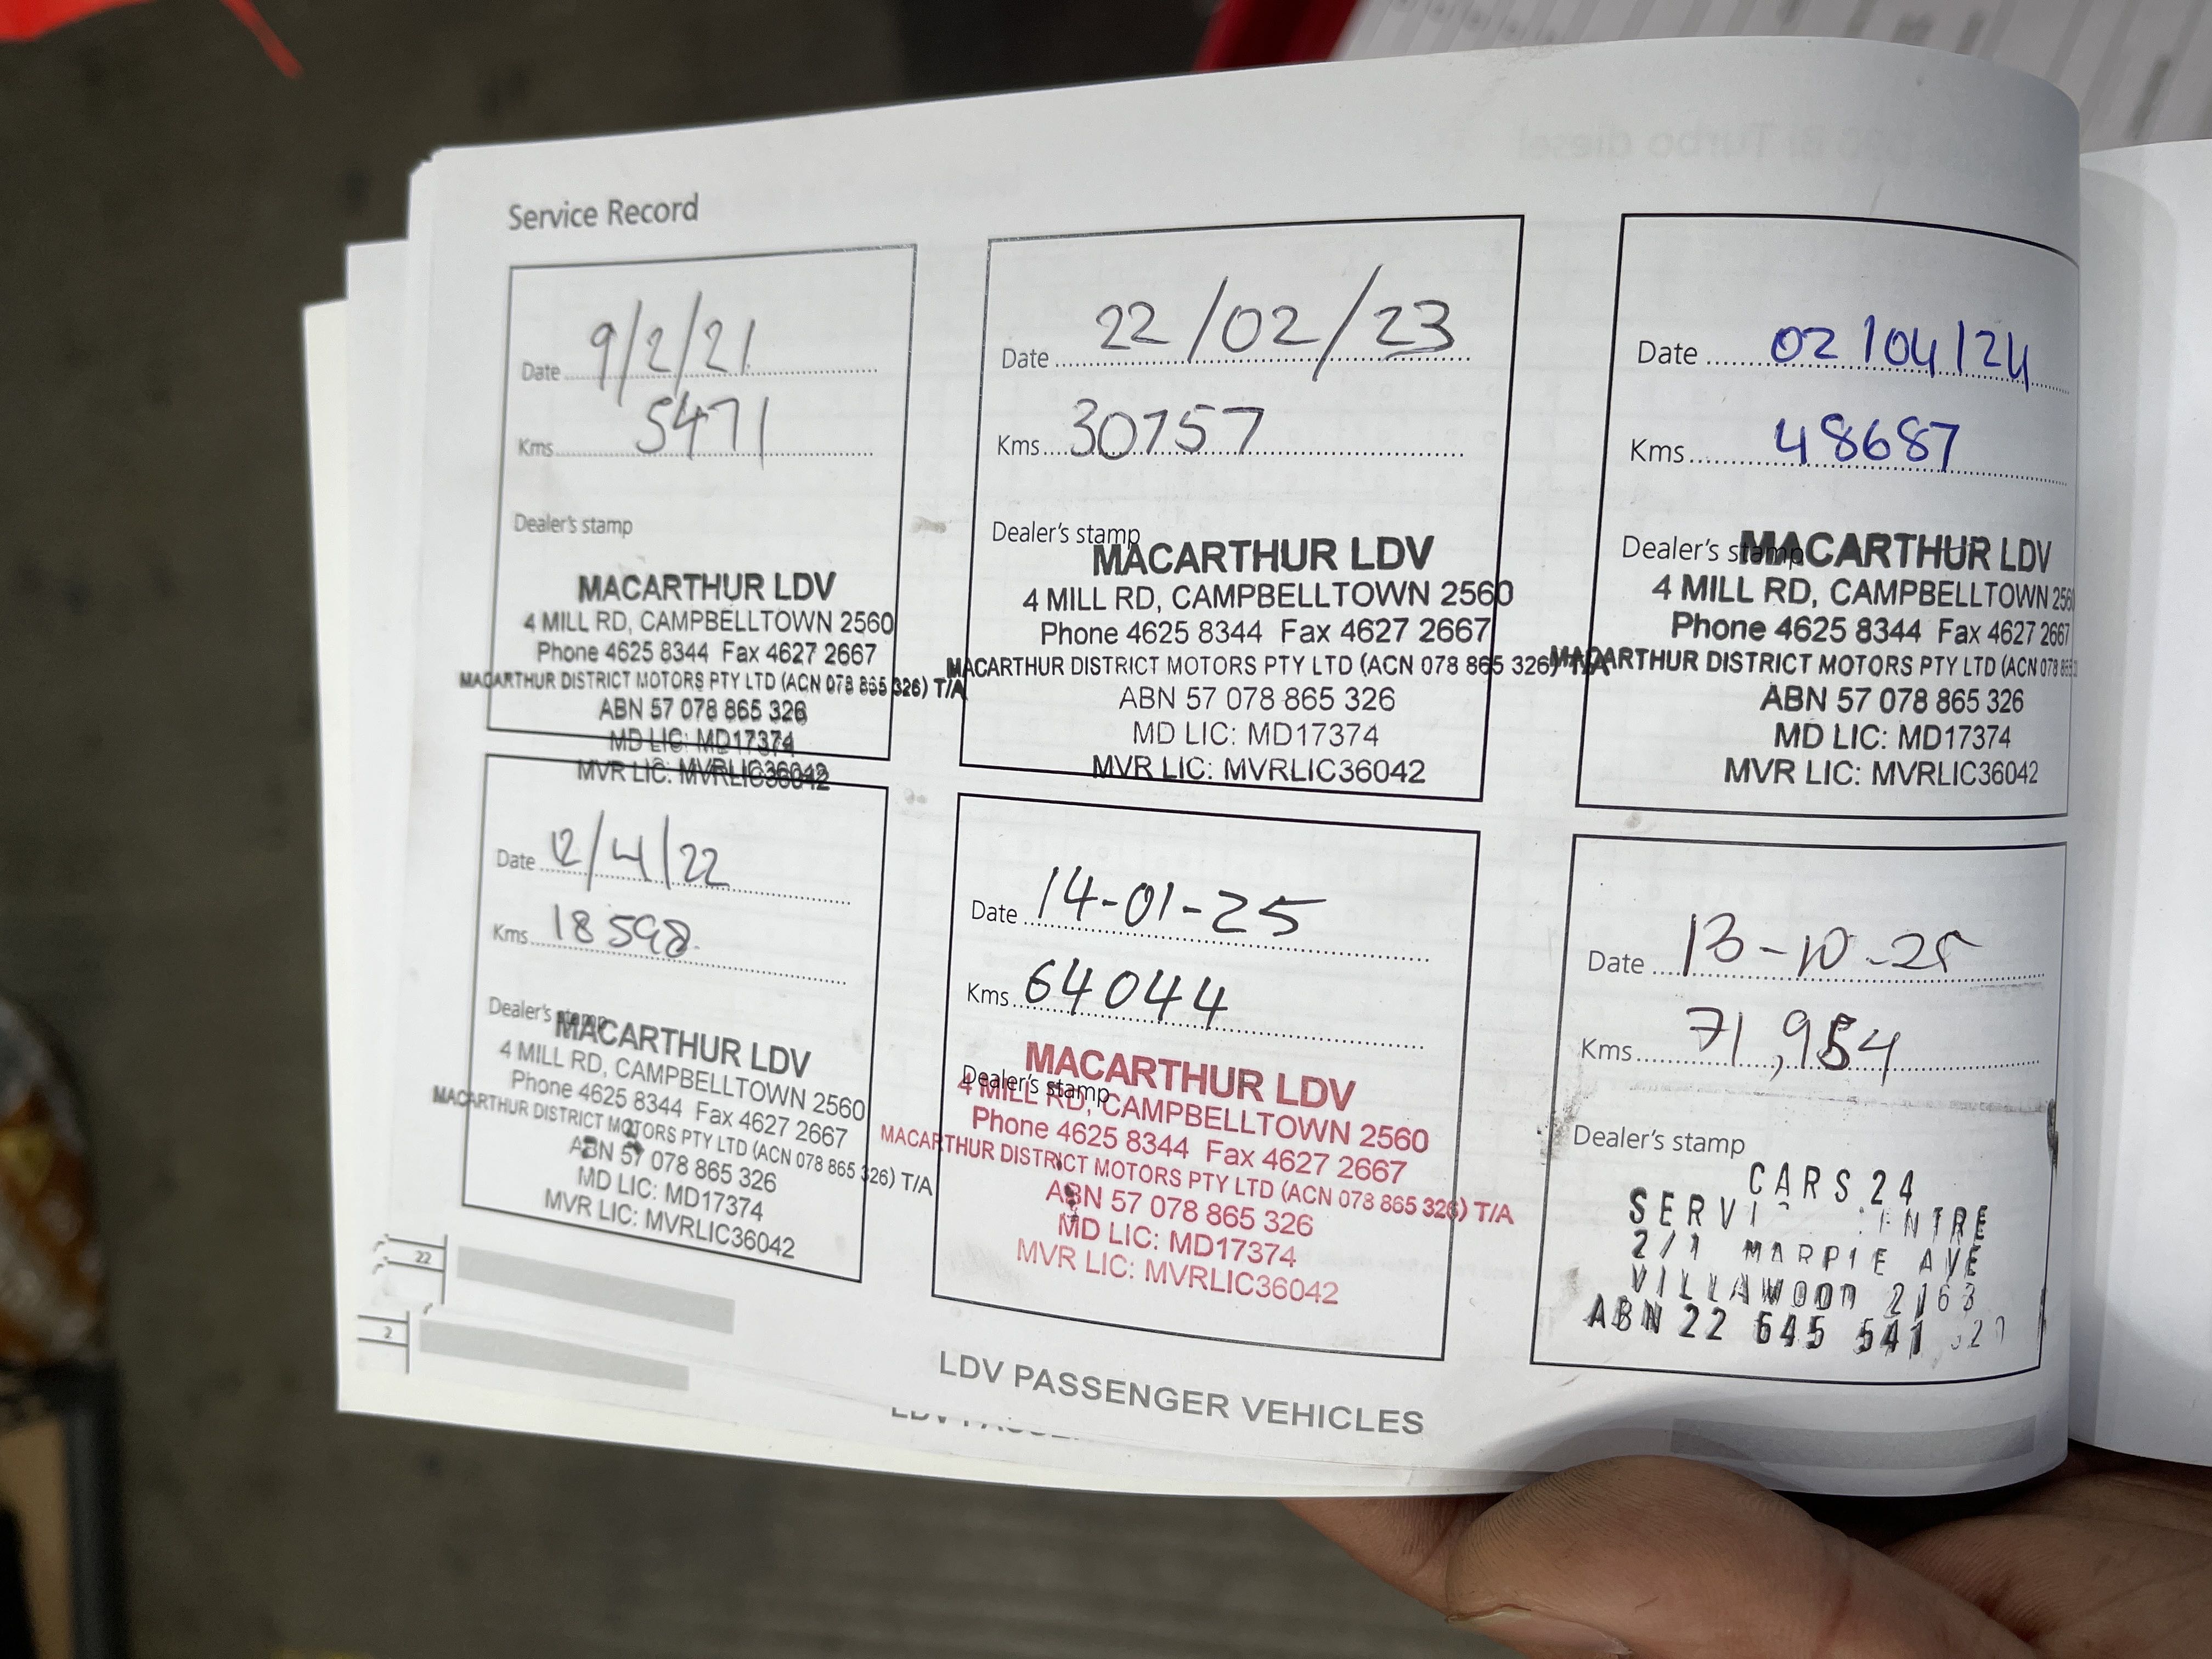 Service Record
Date 9/2/21
Kms 5471
Dealer's stamp
MACARTHUR LDV
4 MILL RD, CAMPBELLTOWN 2560
Phone 4625 8344 Fax 4627 2667
MACARTHUR DISTRICT MOTORS PTY LTD (ACN 078 865 326) T/A
ABN 57 078 865 326
MD LIC: MD17374
MVR LIC: MVRLIC36042
Date 22/02/23
Kms 30757
Dealer's stamp
MACARTHUR LDV
4 MILL RD, CAMPBELLTOWN 2560
Phone 4625 8344 Fax 4627 2667
MACARTHUR DISTRICT MOTORS PTY LTD (ACN 078 865 326) T/A
ABN 57 078 865 326
MD LIC: MD17374
MVR LIC: MVRLIC36042
Date 02/04/24
Kms 48687
Dealer's stamp
MACARTHUR LDV
4 MILL RD, CAMPBELLTOWN 2560
Phone 4625 8344 Fax 4627 2667
MACARTHUR DISTRICT MOTORS PTY LTD (ACN 078
ABN 57 078 865 326
MD LIC: MD17374
MVR LIC: MVRLIC36042
Date 12/4/22
Kms 18598
Dealer's stamp
MACARTHUR LDV
4 MILL RD, CAMPBELLTOWN 2560
Phone 4625 8344 Fax 4627 2667
MACARTHUR DISTRICT MOTORS PTY LTD (ACN 078 865 326) T/A
ABN 57 078 865 326
MD LIC: MD17374
MVR LIC: MVRLIC36042
Date 14-01-25
Kms 64044
Dealer's stamp
MACARTHUR LDV
4 MILL RD, CAMPBELLTOWN 2560
Phone 4625 8344 Fax 4627 2667
MACARTHUR DISTRICT MOTORS PTY LTD (ACN 078 865 326) T/A
ABN 57 078 865 326
MD LIC: MD17374
MVR LIC: MVRLIC36042
Date 13-10-25
Kms 71,954
Dealer's stamp
CARS24
2/1 AVE
VILLAWOOD 2163
ABN 22 645 541
22
2
LDV PASSENGER VEHICLES